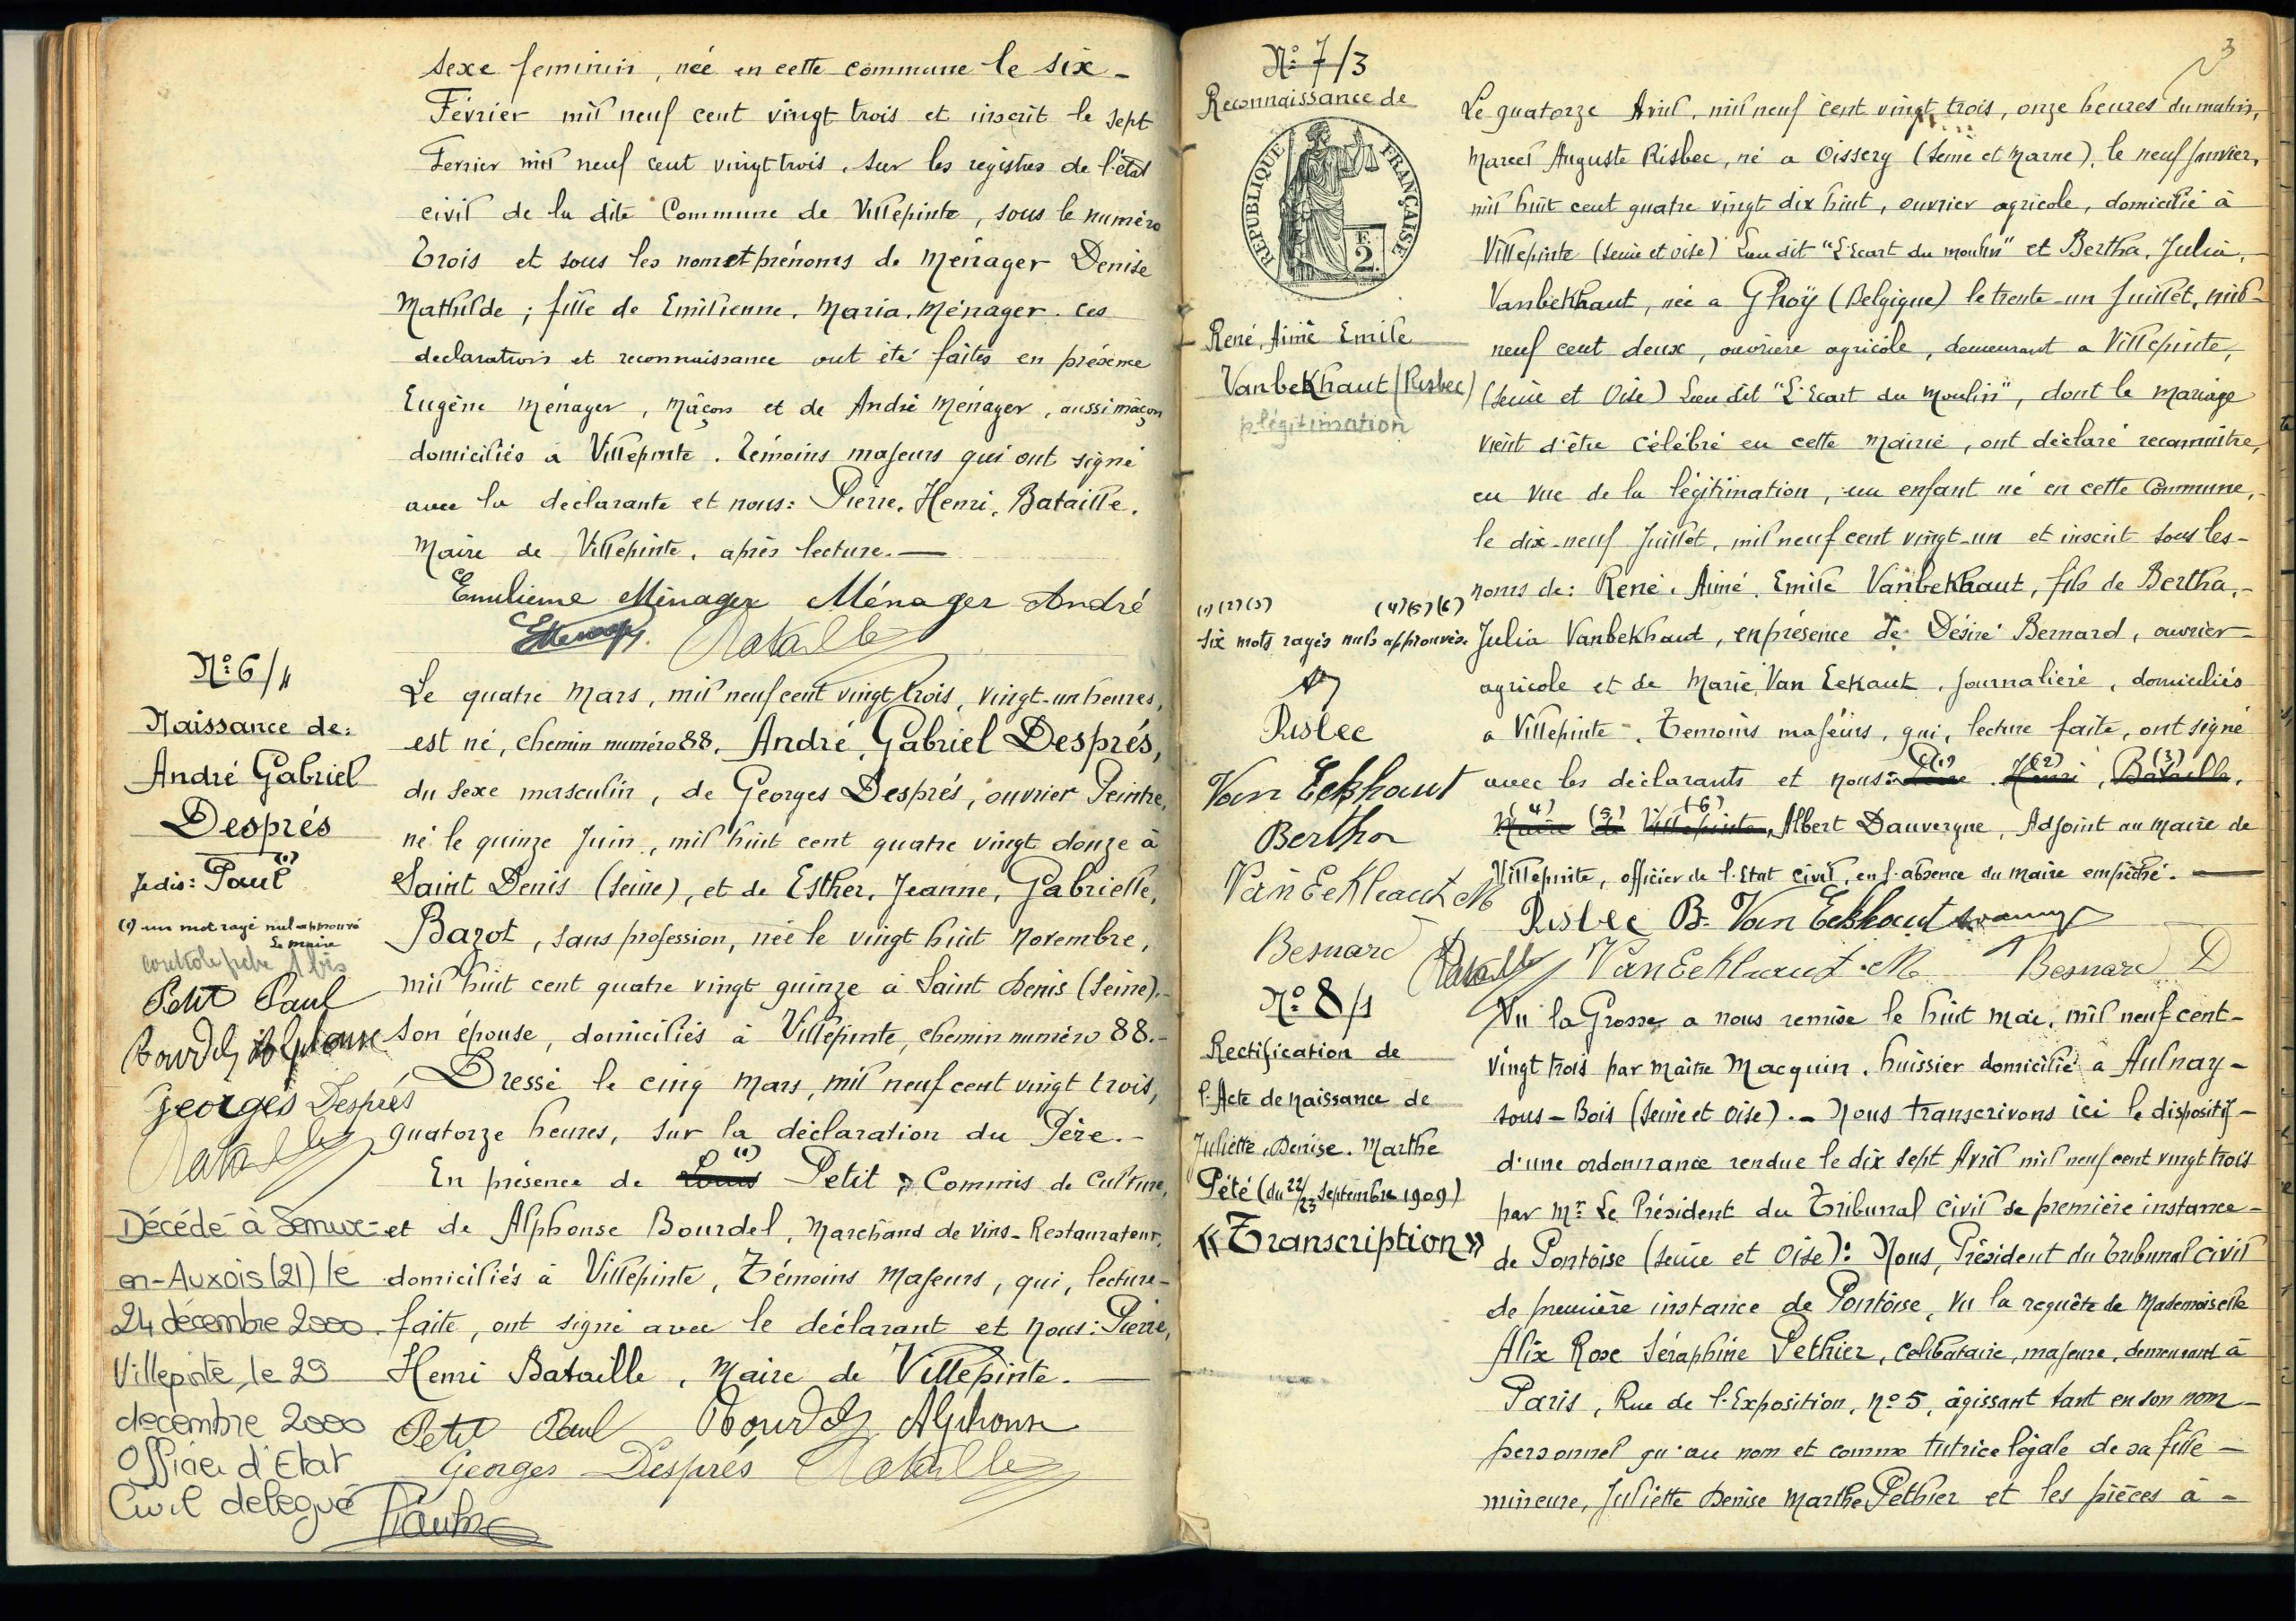 sexe feminin, née en cette commune le six-
Février mil neuf cent vingt trois et inscrit le sept
Fevrier mil neuf cent vingt trois, sur les registres de l'état
civil de la dite Commune de Villepinte, sous le numéro
trois et sous les noms et prénoms de Ménager Denise
Mathilde ; fille de Emilienne, Maria, Ménager. ces
declaration et reconnaissance ont été faites en présence
Eugène Ménager, Mâçon et de André Ménager, aussi mâçon
domiciliés à Villepinte. Témoins majeurs qui ont signé
avec la déclarante et nous: Pierre, Henri, Bataille,
Maire de Villepinte, après lecture.—
Emilienne Ménager Ménager André
EMenager Bataille
N° 6/4
Naissance de:
André Gabriel
Després
Je dis: Paul (1)
(1) un mot rayé nul approuvé
Le maire
Petit Paul
Bourdel Alphonse
Georges Després
Bataille
Décédé à Semur-
en-Auxois (21) le
24 décembre 2000
Villepinte, le 29
decembre 2000
Officier d'Etat
Civil délégué
Le quatre Mars, mil neuf cent vingt trois, vingt-un heures,
est né, chemin numéro 88, André, Gabriel Després,
du sexe masculin, de Georges Després, ouvrier Peintre,
né le quinze Juin, mil huit cent quatre vingt douze à
Saint Denis (Seine), et de Esther, Jeanne, Gabrielle,
Bazot, sans profession, née le vingt huit Novembre,
mil huit cent quatre vingt quinze à Saint Denis (Seine).-
son épouse, domiciliés à Villepinte, chemin numéro 88.-
Dressé le cinq Mars, mil neuf cent vingt trois,
quatorze heures, sur la déclaration du Père.-
En présence de Louis (1) Petit, Commis de Culture,
et de Alphonse Bourdel, Marchand de Vins-Restaurateur,
domiciliés à Villepinte, Témoins Majeurs, qui, lecture-
faite, ont signé avec le déclarant et Nous: Pierre,
Henri Bataille, Maire de Villepinte.—
Petit Paul Bourdel Alphonse
Georges Després Bataille
3
N° 7/3
Reconnaissance de
REPUBLIQUE FRANÇAISE
F.
2.
René, Aimé Emile
Vanbekhaut (Risbec)
p légitimation
(1) (2) (3) (4) (5) (6)
six mots rayés nuls approuvés.
Risbec
Van Eekhaut
Bertha
Van Eekhaut M
Besnard
Le quatorze Avril, mil neuf cent vingt trois, onze heures du matin,
Marcel Auguste Risbec, né a Oissery (Seine et Marne), le neuf Janvier,
mil huit cent quatre vingt dix huit, ouvrier agricole, domicilié à
Villepinte (Seine et Oise) Lieu dit "L'Ecart du moulin" et Bertha, Julia,-
Vanbekhaut, née a Ghoÿ (Belgique) le trente-un Juillet, mil-
neuf cent deux, ouvrière agricole, demeurant a Villepinte,
(Seine et Oise) Lieu dit "L'Ecart du Moulin", dont le mariage
vient d'être célébré en cette mairie, ont déclaré reconnaître,
en vue de la légitimation, un enfant né en cette Commune,-
le dix-neuf Juillet, mil neuf cent vingt-un et inscrit sous les-
noms de: René, Aimé, Emile Vanbekhaut, fils de Bertha,-
Julia Vanbekhaut, en présence de Désiré Bernard, ouvrier-
agricole et de Marie, Van Eekaut, Journalière, domiciliés
a Villepinte-, Temoins majeurs, qui, lecture faite, ont signé
avec les déclarants et nous: Pierre (1), Henri (2), Bataille (3),
Maire (4) de (5) Villepinte (6), Albert Dauvergne, Adjoint au maire de
Villepinte, officier de l'Etat civil, en l'absence du maire empêché.—
Risbec B. Van Eekhaut
Bataille Van Eekhaut M Besnard D
N° 8/1
Rectification de
l'Acte de naissance de
Juliette, Denise, Marthe
Pété (du 22/23 Septembre 1909)
«Transcription»
Vu la Grosse a nous remise le huit mai, mil neuf cent-
vingt trois par maître Macquin, huissier domicilié a Aulnay-
sous-Bois (Seine et Oise).- Nous transcrivons ici le dispositif-
d'une ordonnance rendue le dix sept Avril mil neuf cent vingt trois
par Mr Le Président du Tribunal Civil de première instance-
de Pontoise (Seine et Oise): Nous, Président du Tribunal Civil
de première instance de Pontoise, Vu la requête de Mademoiselle
Alix Rose Séraphine Pethier, Célibataire, majeure, demeurant à
Paris, Rue de l'Exposition, N° 5, agissant tant en son nom-
personnel qu'au nom et comme tutrice légale de sa fille-
mineure, Juliette Denise Marthe Pethier et les pièces à-